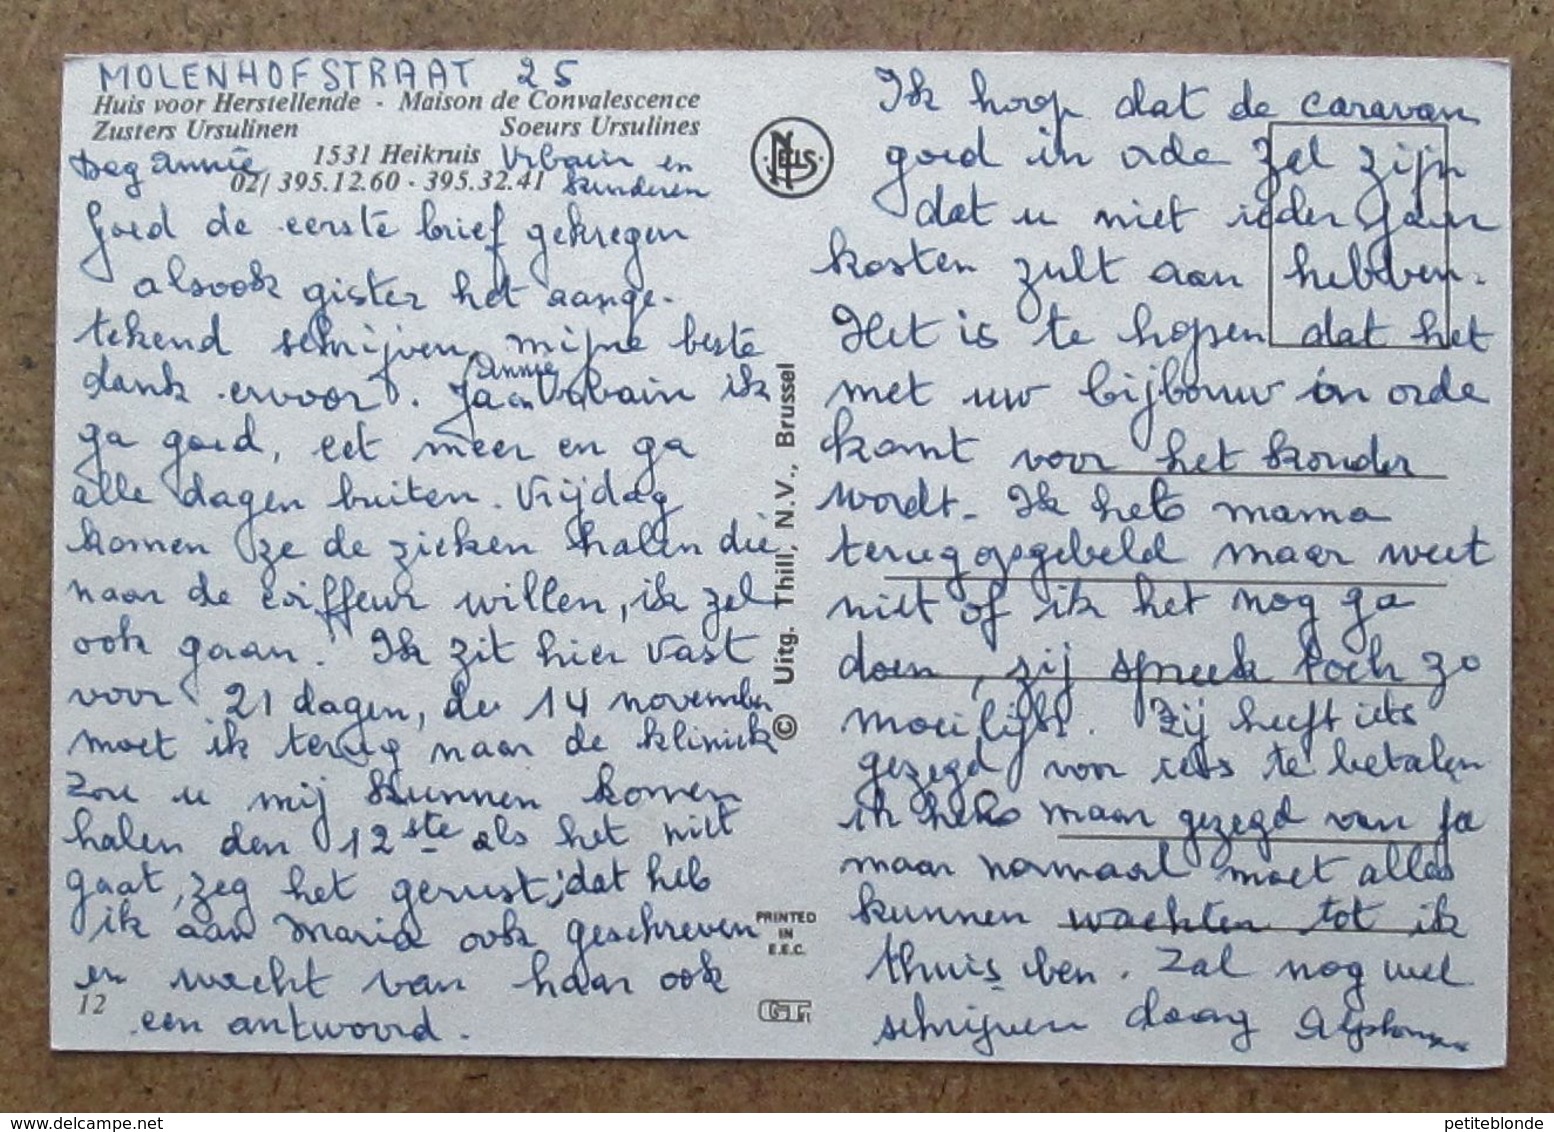 MOLENHOFSTRAAT 25
Huis voor Herstellende - Maison de Convalescence
Zusters Ursulinen Soeurs Ursulines
1531 Heikruis
02/ 395.12.60 - 395.32.41
Dag Annie Urbain en
kinderen
Goed de eerste brief gekregen
alsook gister het aange-
tekend schrijven, mijne beste
dank ervoor. Ja Annie en Urbain ik
ga goed, eet meer en ga
alle dagen buiten. Vrijdag
komen ze de zieken halen die
naar de coiffeur willen, ik zal
ook gaan. Ik zit hier vast
voor 21 dagen, de 14 november
moet ik terug naar de kliniek
Zou u mij kunnen komen
halen den 12ste als het niet
gaat, zeg het gerust, dat heb
ik aan Maria ook geschreven
en wacht van haar ook
een antwoord.
12
NELS
© Uitg. Thill, N.V., Brussel
PRINTED
IN
E.E.C.
Ik hoop dat de caravan
goed in orde zal zijn
dat u niet ieder jaar
kosten zult aan hebben.
Het is te hopen dat het
met uw bijbouw in orde
komt voor het kouder
wordt. Ik heb mama
terug opgebeld maar weet
niet of ik het nog ga
doen, zij spreek toch zo
moeilijk. Zij heeft iets
gezegd voor iets te betalen
ik heb maar gezegd van ja
maar normaal moet alles
kunnen wachten tot ik
thuis ben. Zal nog wel
schrijven daag
petiteblonde